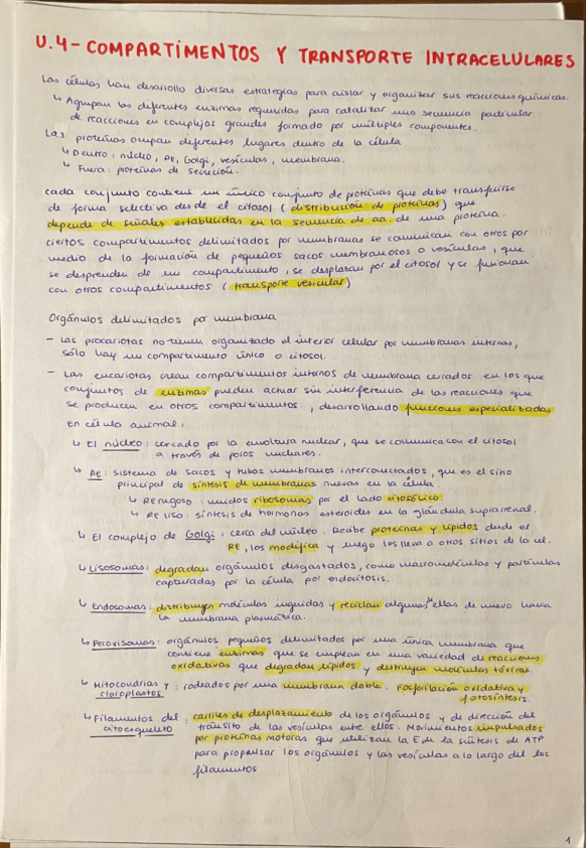 U.4- COMPARTIMENTOS Y TRANSPORTE INTRACELULARES
Las células han desarrollo diversas estrategias para aislar y organizar sus reacciones químicas.
↳ Agrupan las diferentes enzimas requeridas para catalizar una secuencia particular
de reacciones en complejos grandes formado por múltiples componentes.
Las proteínas ocupan diferentes lugares dentro de la célula
↳ Dentro: núcleo, RE, Golgi, vesículas, membrana.
↳ Fuera: proteínas de secreción.
cada conjunto contiene un único conjunto de proteínas que debe transferirse
de forma selectiva desde el citosol (distribución de proteínas) que
depende de señales establecidas en la secuencia de aa. de una proteína.
ciertos compartimentos delimitados por membranas se comunican con otros por
medio de la formación de pequeños sacos membranosos o vesículas, que
se desprenden de un compartimento, se desplazan por el citosol y se fusionan
con otros compartimentos (transporte vesicular)
Orgánulos delimitados por membrana
- Las procariotas no tienen organizado el interior celular por membranas internas,
sólo hay un compartimento único o citosol.
- Las eucariotas crean compartimentos internos de membrana cerrados en los que
conjuntos de enzimas pueden actuar sin interferencia de las reacciones que
se producen en otros compartimentos, desarrollando funciones especializadas
En célula animal:
↳ El núcleo: cercado por la envoltura nuclear, que se comunica con el citosol
a través de poros nucleares.
↳ RE: sistema de sacos y tubos membranos interconectados, que es el sitio
principal de síntesis de membranas nuevas en la célula.
↳ RE rugoso: unidos ribosomas por el lado citosólico.
↳ RE liso: síntesis de hormonas esteroides en la glándula suprarrenal.
↳ El complejo de Golgi: cerca del núcleo. Recibe proteínas y lípidos desde el
RE, los modifica y luego los lleva a otros sitios de la cél.
↳ Lisosomas: degradan orgánulos desgastados, como macromoléculas y partículas
capturadas por la célula por endocitosis.
↳ Endosomas: distribuyen moléculas ingeridas y reciclan algunos ellas de nuevo hacia
la membrana plasmática.
↳ Peroxisomas: orgánulos pequeños delimitados por una única membrana que
contiene enzimas que se emplean en una variedad de reacciones
oxidativas que degradan lípidos y destruyen moléculas tóxicas.
↳ Mitocondrias y : rodeados por una membrana doble. Fosforilación oxidativa y
cloroplastos fotosíntesis.
↳ Filamentos del : carriles de desplazamiento de los orgánulos y de dirección del
citoesqueleto tránsito de las vesículas entre ellos. Movimientos impulsados
por proteínas motoras que utilizan la E de la síntesis de ATP
para propulsar los orgánulos y las vesículas a lo largo del los
filamentos
1